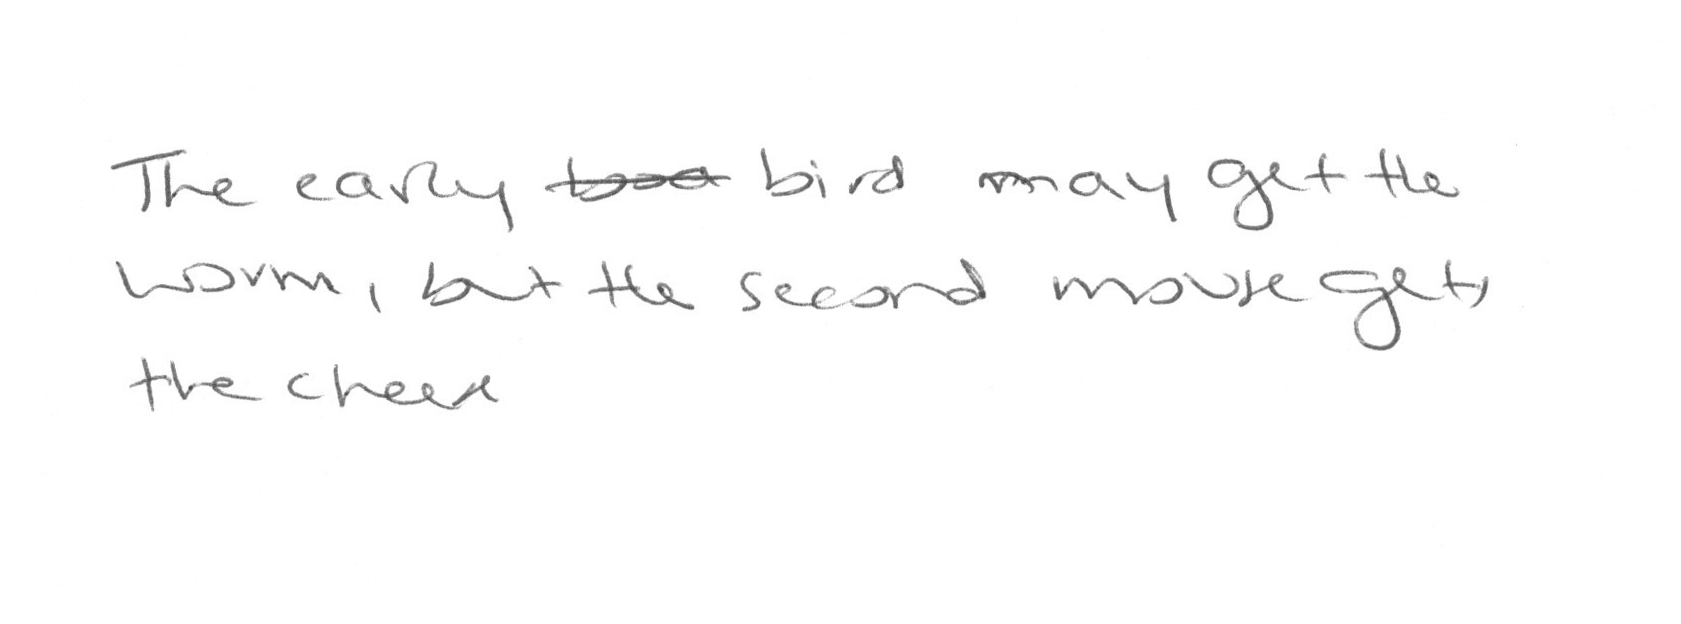 The early bird may get the
worm, but the second mouse gets
the cheese